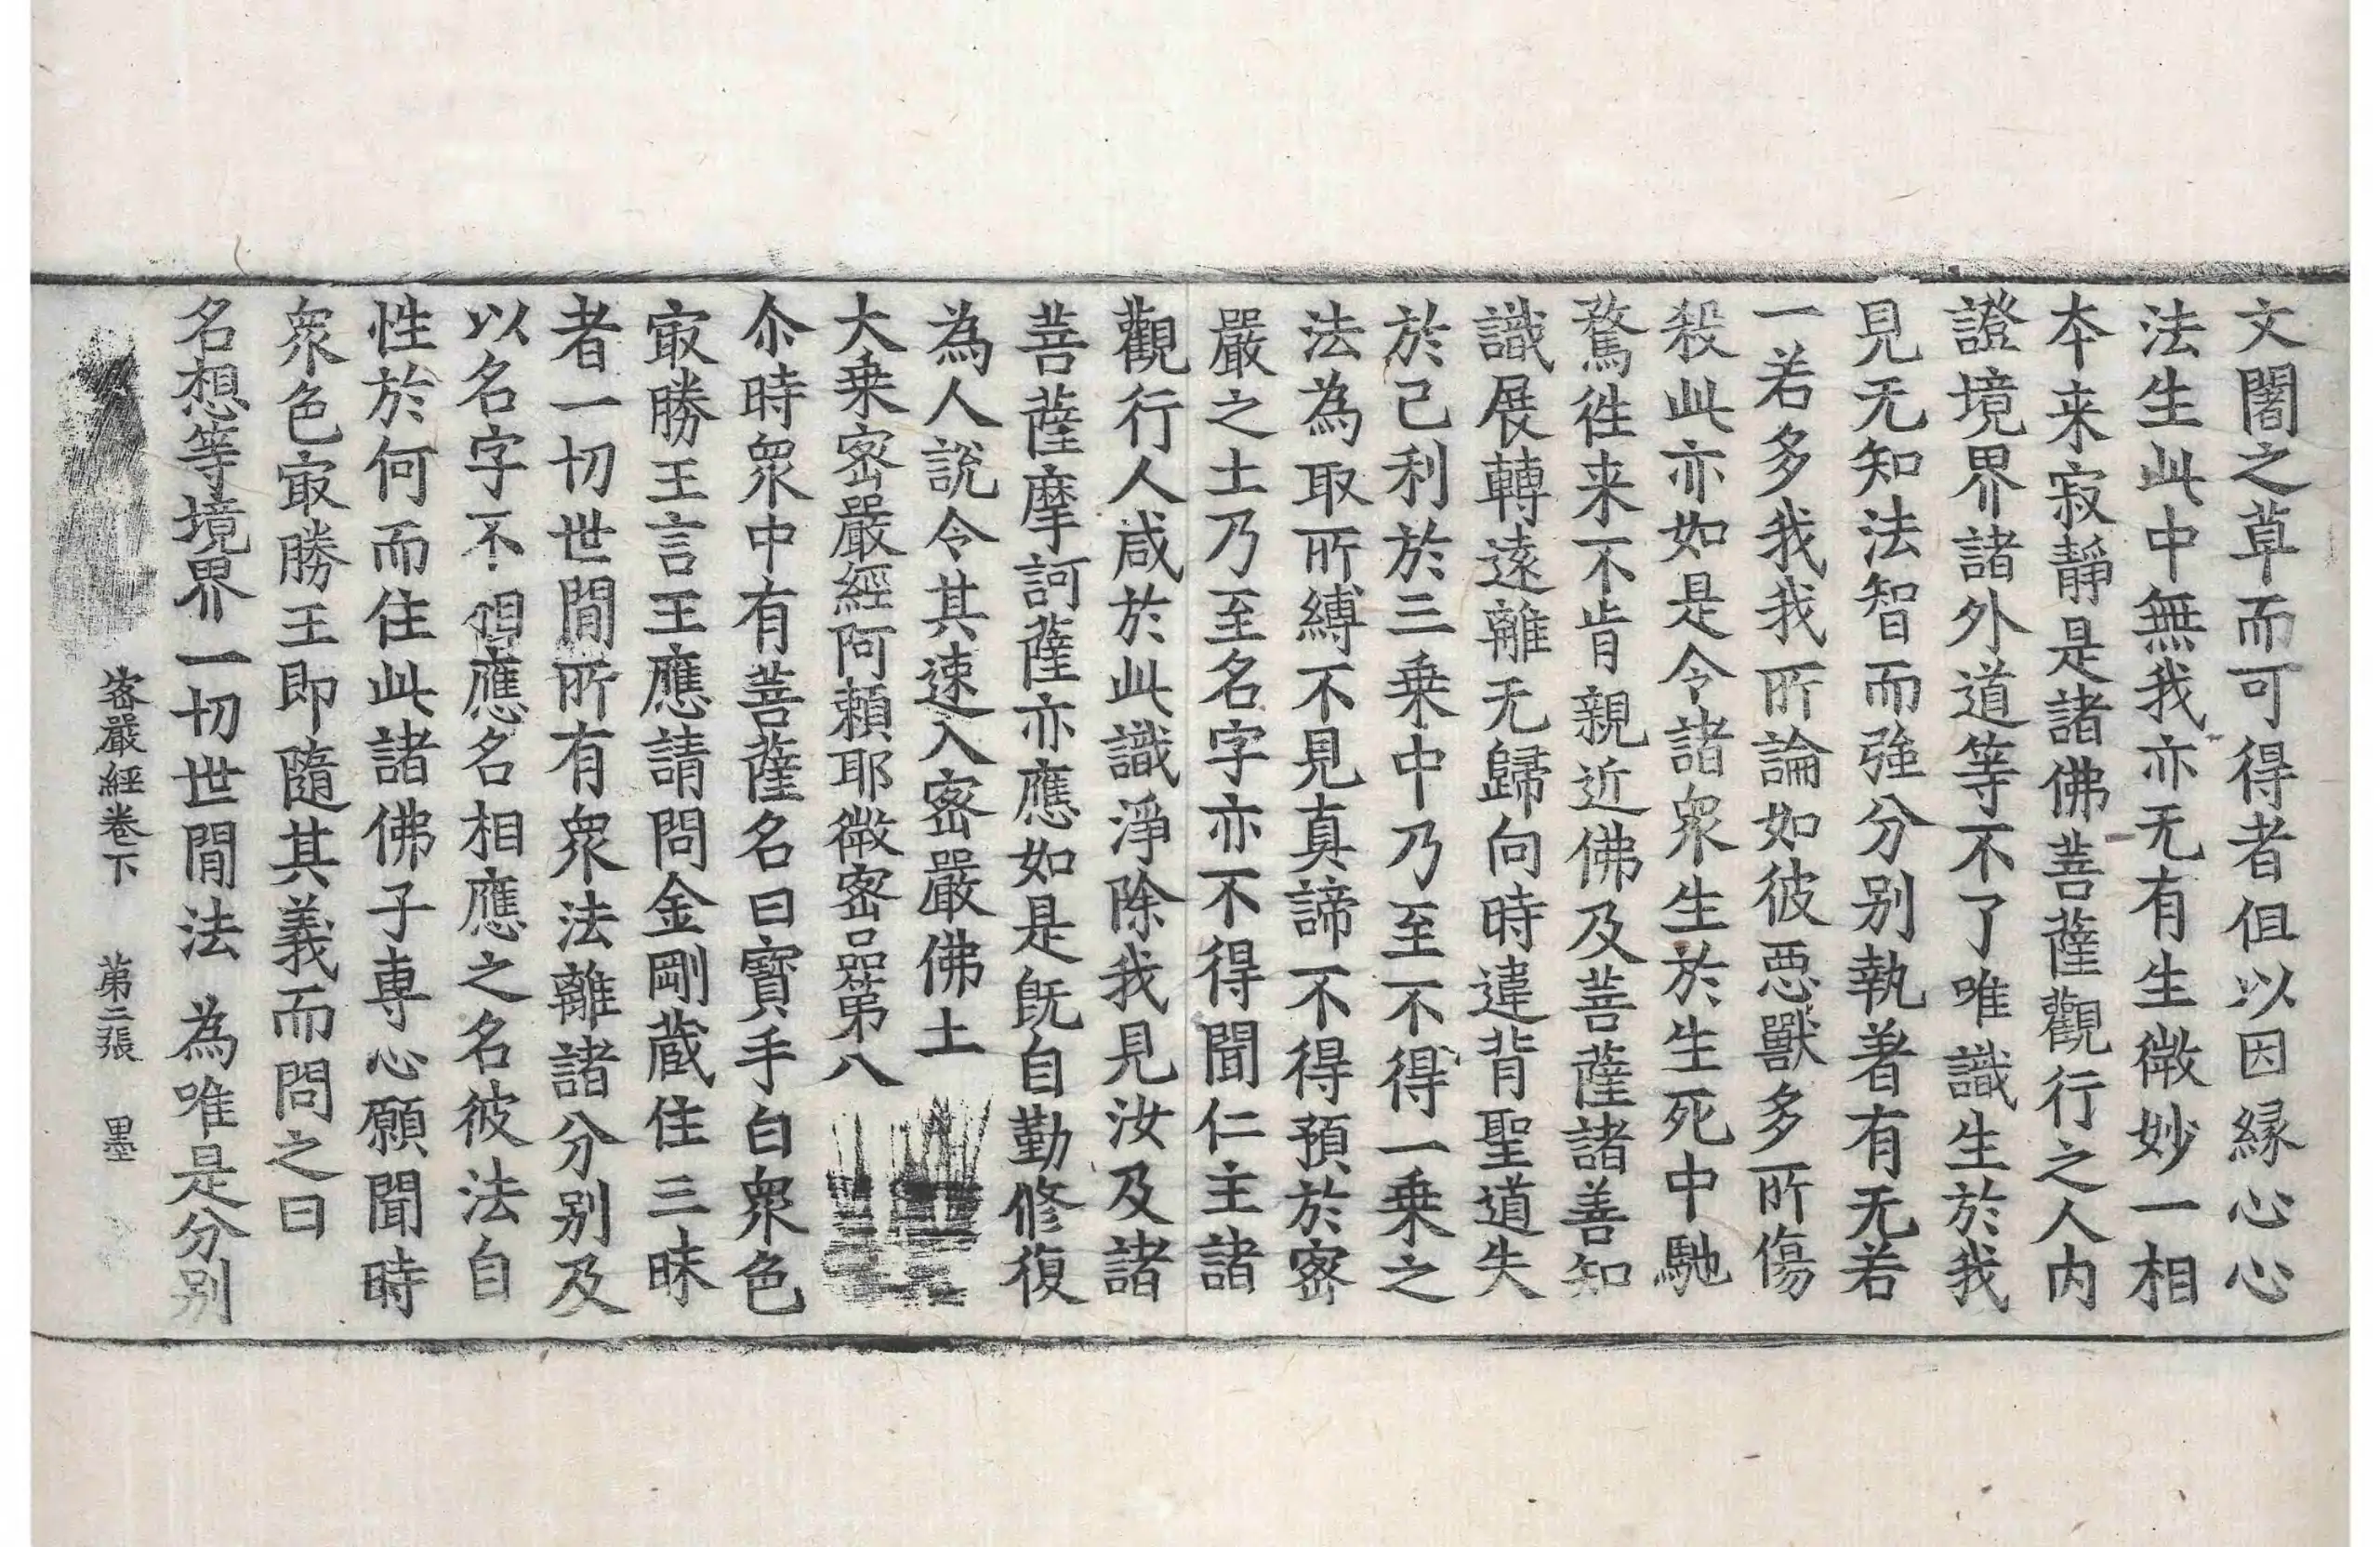 文闍之草而可得者但以因緣心心
法生此中無我亦无有生微妙一相
本来寂靜是諸佛菩薩觀行之人内
證境界諸外道等不了唯識生於我
見无知法智而強分別執著有无若
一若多我我所論如彼惡獸多所傷
殺此亦如是令諸衆生於生死中馳
騖徃来不肯親近佛及菩薩諸善知
識展轉遠離无歸向時違背聖道失
於己利於三乗中乃至不得一乗之
法為取所縛不見真諦不得預於密
嚴之土乃至名字亦不得聞仁主諸
觀行人咸於此識淨除我見汝及諸
菩薩摩訶薩亦應如是既自勤修復
為人說令其速入密嚴佛土
大乗密嚴經阿賴耶微密品第八
尒時衆中有菩薩名曰寶手白衆色
冣勝王言王應請問金剛蔵住三昧
者一切世間所有衆法離諸分別及
以名字不相應名相應之名彼法自
性於何而住此諸佛子專心願聞時
衆色冣勝王即隨其義而問之曰
名想等境界一切世間法 為唯是分別
密嚴經卷下 第二張 墨